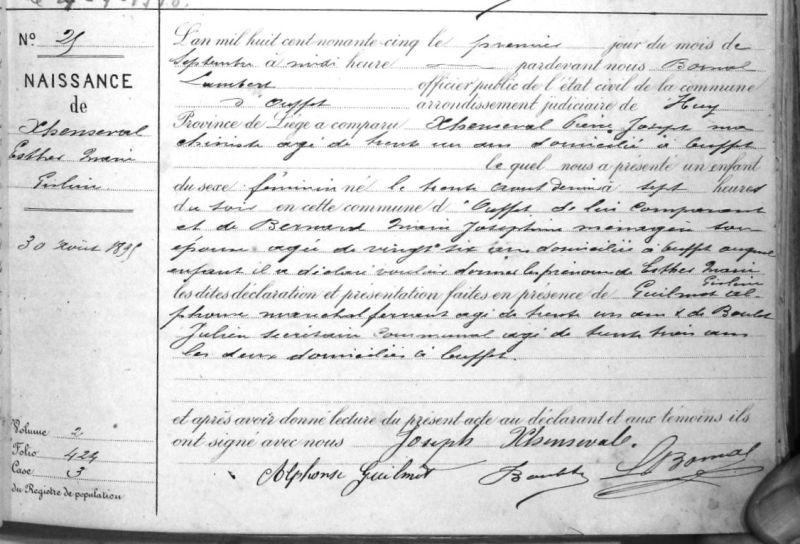 N° 25
NAISSANCE
de
Xhenseval
Esther Marie
Gisline
30 août 1895
Volume 2
Folio 424
Case 3
du Registre de population
L'an mil huit cent nonante-cinq le premier jour du mois de
Septembre à midi heure pardevant nous Bornal
Lambert officier public de l'état civil de la commune
d'Ouffet arrondissement judiciaire de Huy
Province de Liége a comparu Xhenseval Pierre Joseph ma
chiniste agé de trente un ans domicilié à Ouffet
le quel nous a présenté un enfant
du sexe féminin né le trente aout dernier à sept heures
du soir en cette commune d'Ouffet de lui comparant
et de Bernard Marie Josephine ménagère son
épouse agée de vingt six ans domiciliée à Ouffet auquel
enfant il a déclaré vouloir donner les prénoms de Esther Marie
Gisline
les dites déclaration et présentation faites en présence de Guilmot Al-
phonse maréchal ferrant agé de trente un ans & de
Julien secrétaire communal agé de trente trois ans
les deux domiciliés à Ouffet.
et après avoir donné lecture du présent acte au déclarant et aux témoins ils
ont signé avec nous Joseph Xhenseval.
Alphonse Guilmot L Bornal